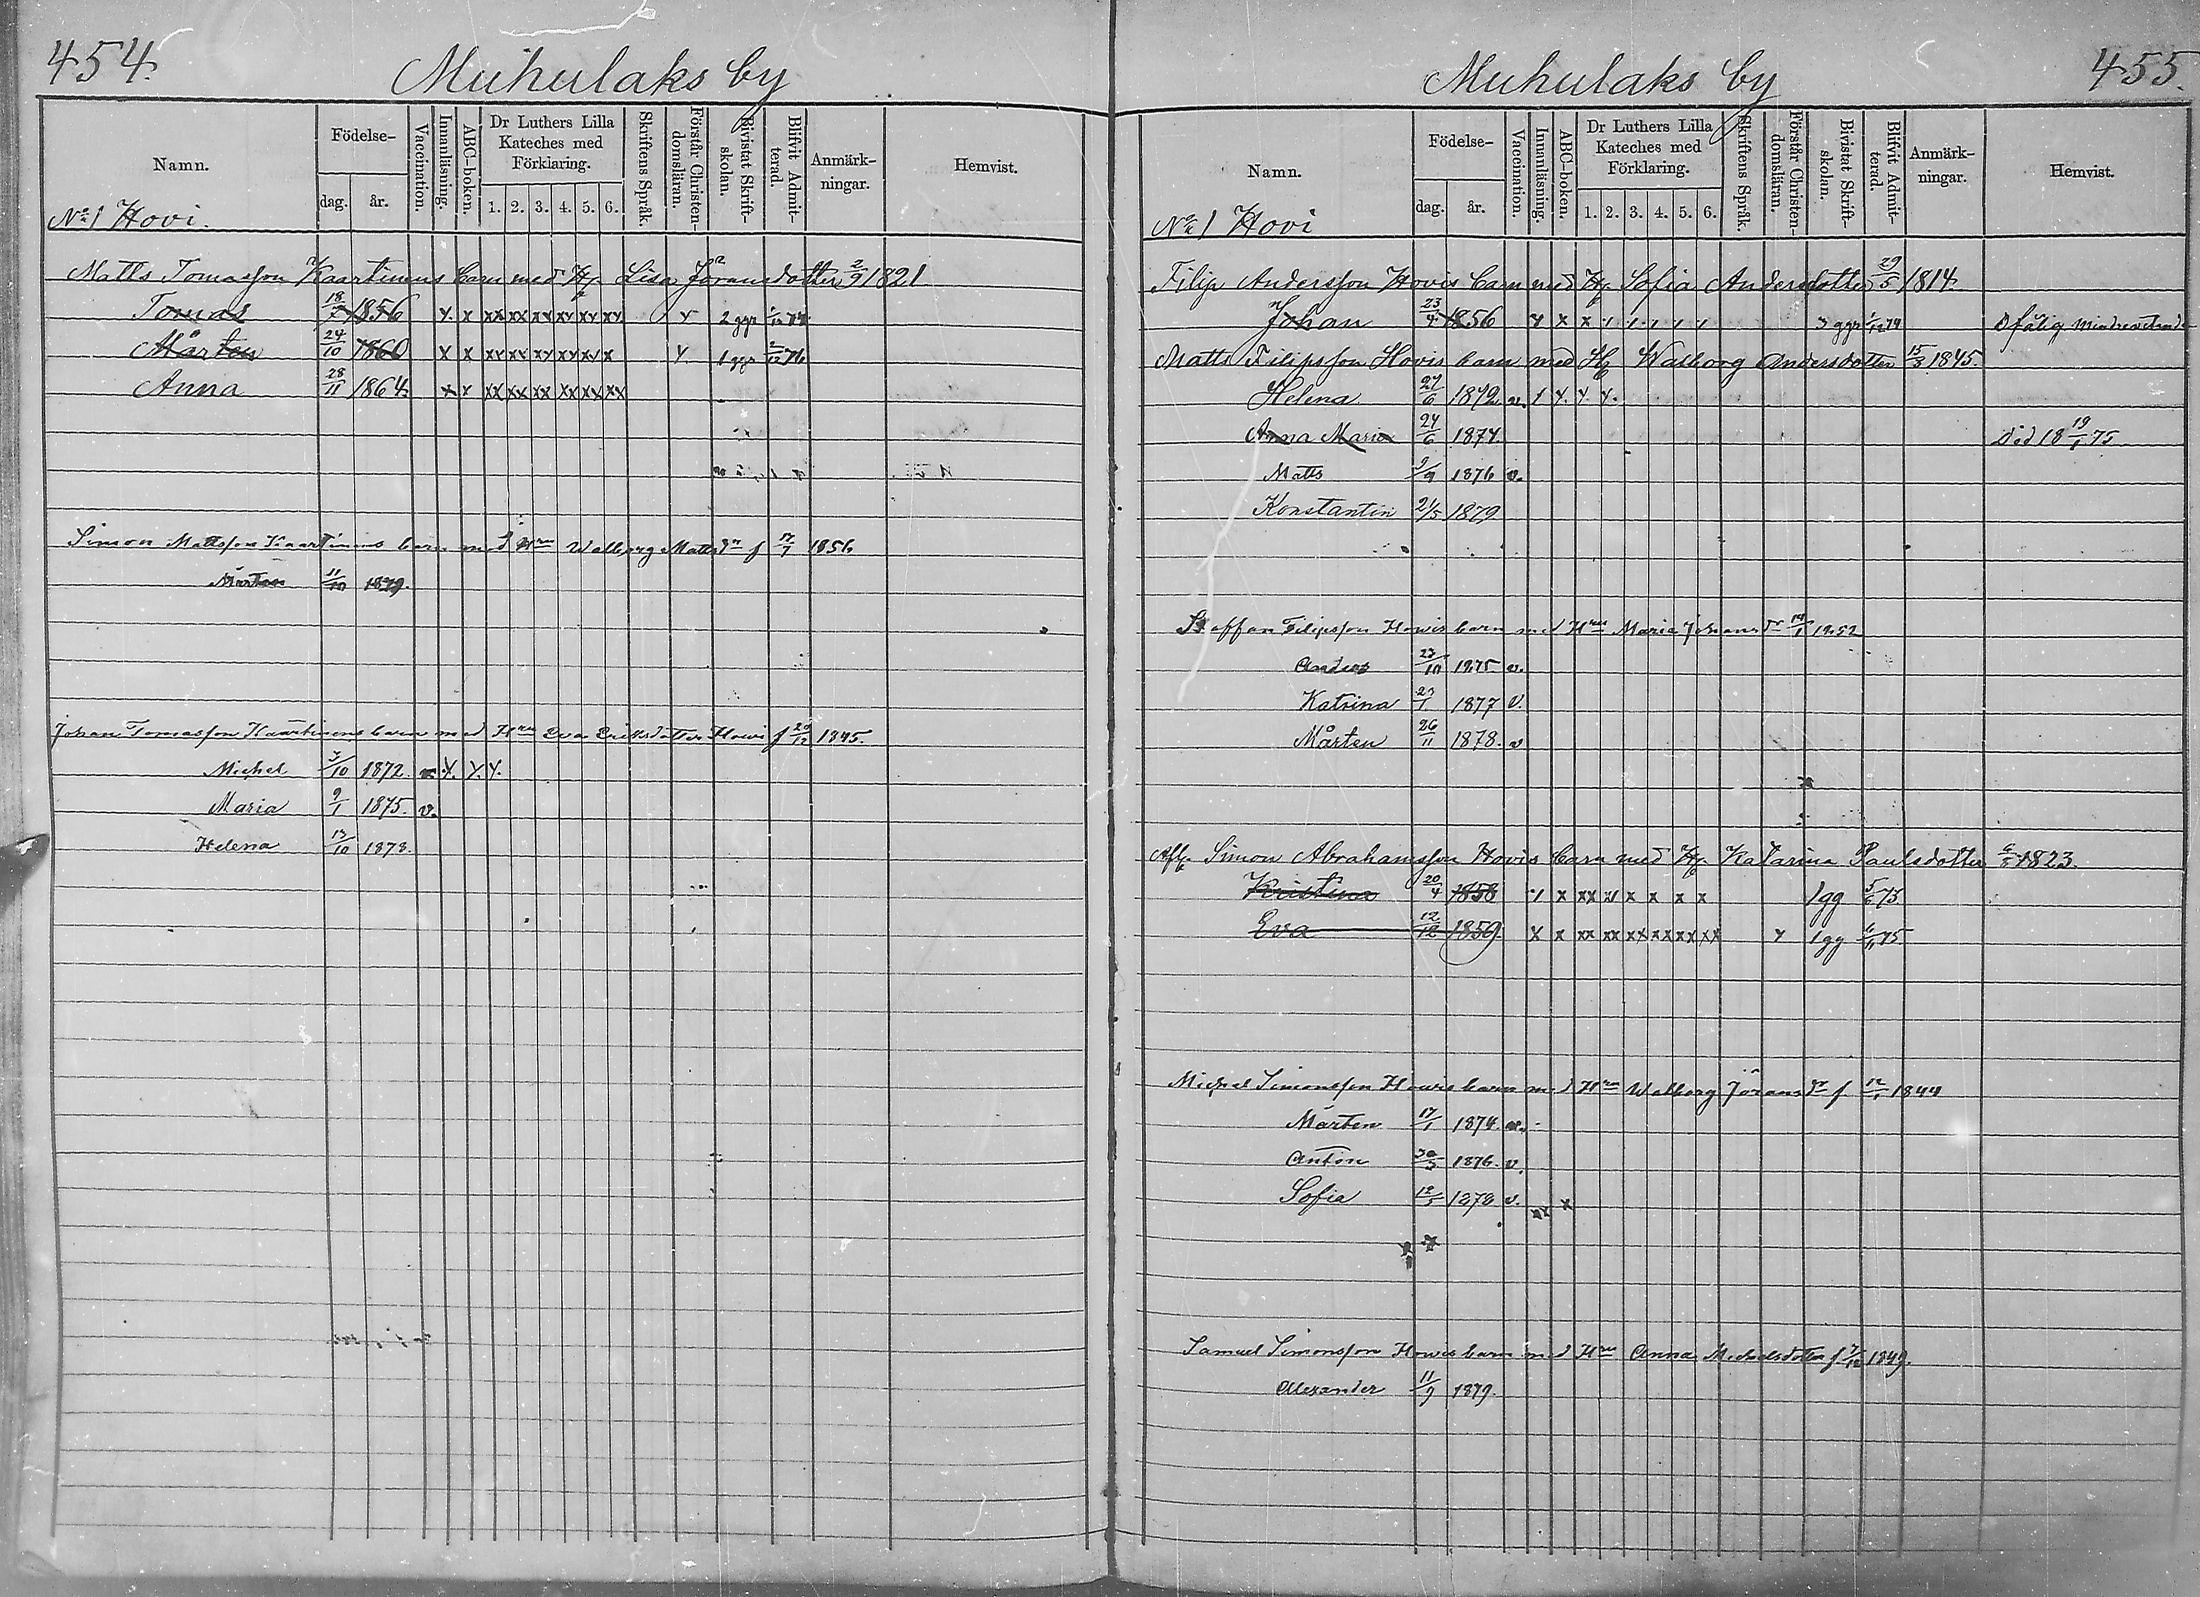 454.
Muhulaks by
Namn.
Födelse-
dag.
år.
Vaccination.
Innanläsning.
ABC-boken.
Dr Luthers Lilla Kateches med Förklaring.
1. 2. 3. 4. 5. 6.
Skriftens Språk.
Förstår Christen-domsläran.
Bivistat Skrift-skolan.
Blifvit Admit-terad.
Anmärk-ningar.
Hemvist.
No 1 Hovi.
Matts Tomasson Kaartinens barn med H. Lisa Göransdotter 2/9 1821
Tomas 18/7 1856 x x xx xx xx xx xx xx 2 ggr
Mårten 24/10 1860 x x xx xx xx xx xx x 1 ggr
Anna 28/11 1864 x x xx xx xx xx xx xx
Simon Mattsson Kaartinens barn med Hru Walborg Matts dr f 1856
Mårten 11/10 1879.
Johan Tomasson Kaartinens barn med Hru Eva Eriksdotter Howi f 1845.
Michel 3/10 1872.
Maria 9/1 1875. v.
Helena 13/10 1878.
455.
Muhulaks by
Namn.
Födelse-
dag.
år.
Vaccination.
Innanläsning.
ABC-boken.
Dr Luthers Lilla Kateches med Förklaring.
1. 2. 3. 4. 5. 6.
Skriftens Språk.
Förstår Christen-domsläran.
Bivistat Skrift-skolan.
Blifvit Admit-terad.
Anmärk-ningar.
Hemvist.
No 1 Hovi
Filip Andersson Hovis barn med H. Sofia Andersdotter 29/5 1814
Johan 23/4 1856 3 ggr
Matts Filipsson Hovis barn med H. Walborg Andersdotter 15/3 1845.
Helena 27/6 1872 v.
Anna Maria 24/6 1874. Död 18 19/1 75
Matts 9/9 1876 v.
Konstantin 21/5 1879
Staffan Filipsson Howis barn med Hru Maria Johans dr 1852
Anders 23/10 1875 v.
Katrina 23/1 1877 v.
Mårten 26/11 1878. v
Afl. Simon Abrahamsson Hovis barn med H. Katarina Paulsdotter 1823.
Kristina 20/4 1858 1 gg 5/6 75
Eva 12/12 1859. x x xx xx xx xx xx xx 1 gg 75
Michel Simonsson Howis barn med Hru Walborg Görans dr f 1844
Mårten 17/1 1874. v.
Anton 1876. v.
Sofia 1878 v.
Samuel Simonsson Howis barn med Hru Anna Michelsdotter f 1849.
Alexander 11/9 1879.